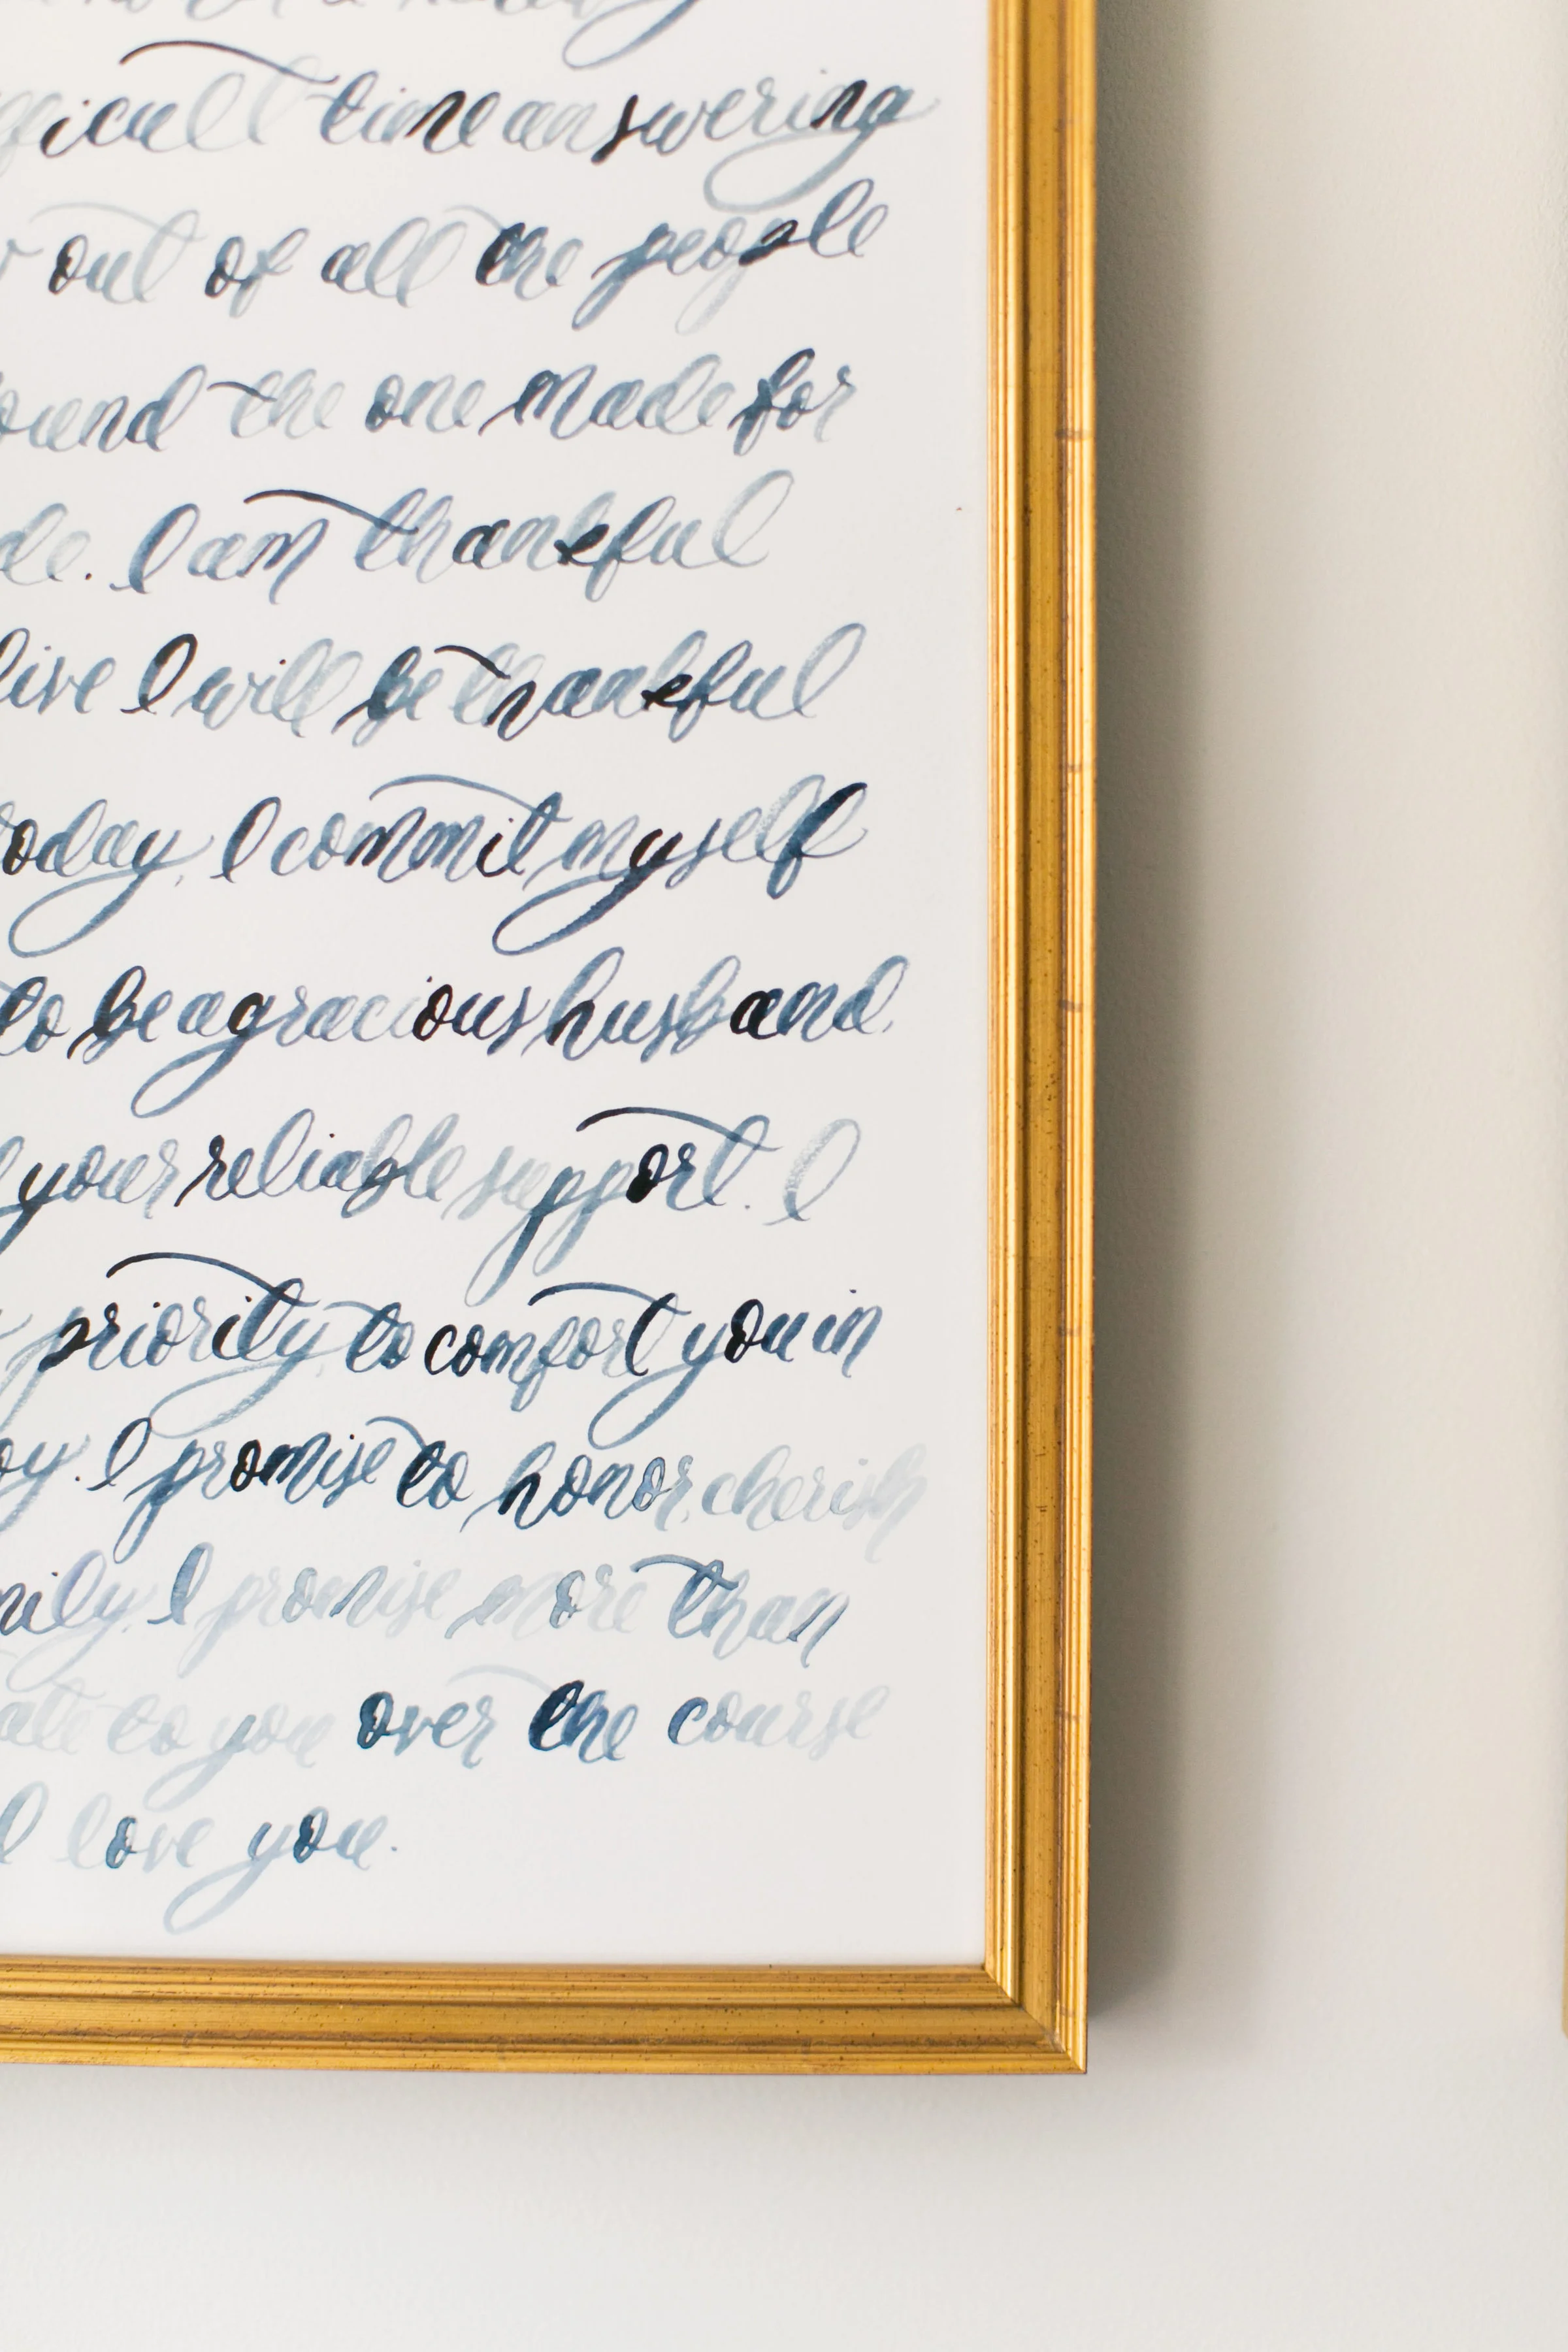 fficult time answering
out of all the people
ound the one made for
de. I am thankful
live I will be thankful
today, I commit myself
to be a gracious husband,
your reliable support. I
priority to comfort you in
oy. I promise to honor, cherish
mily. I promise more than
ate to you over the course
I love you.